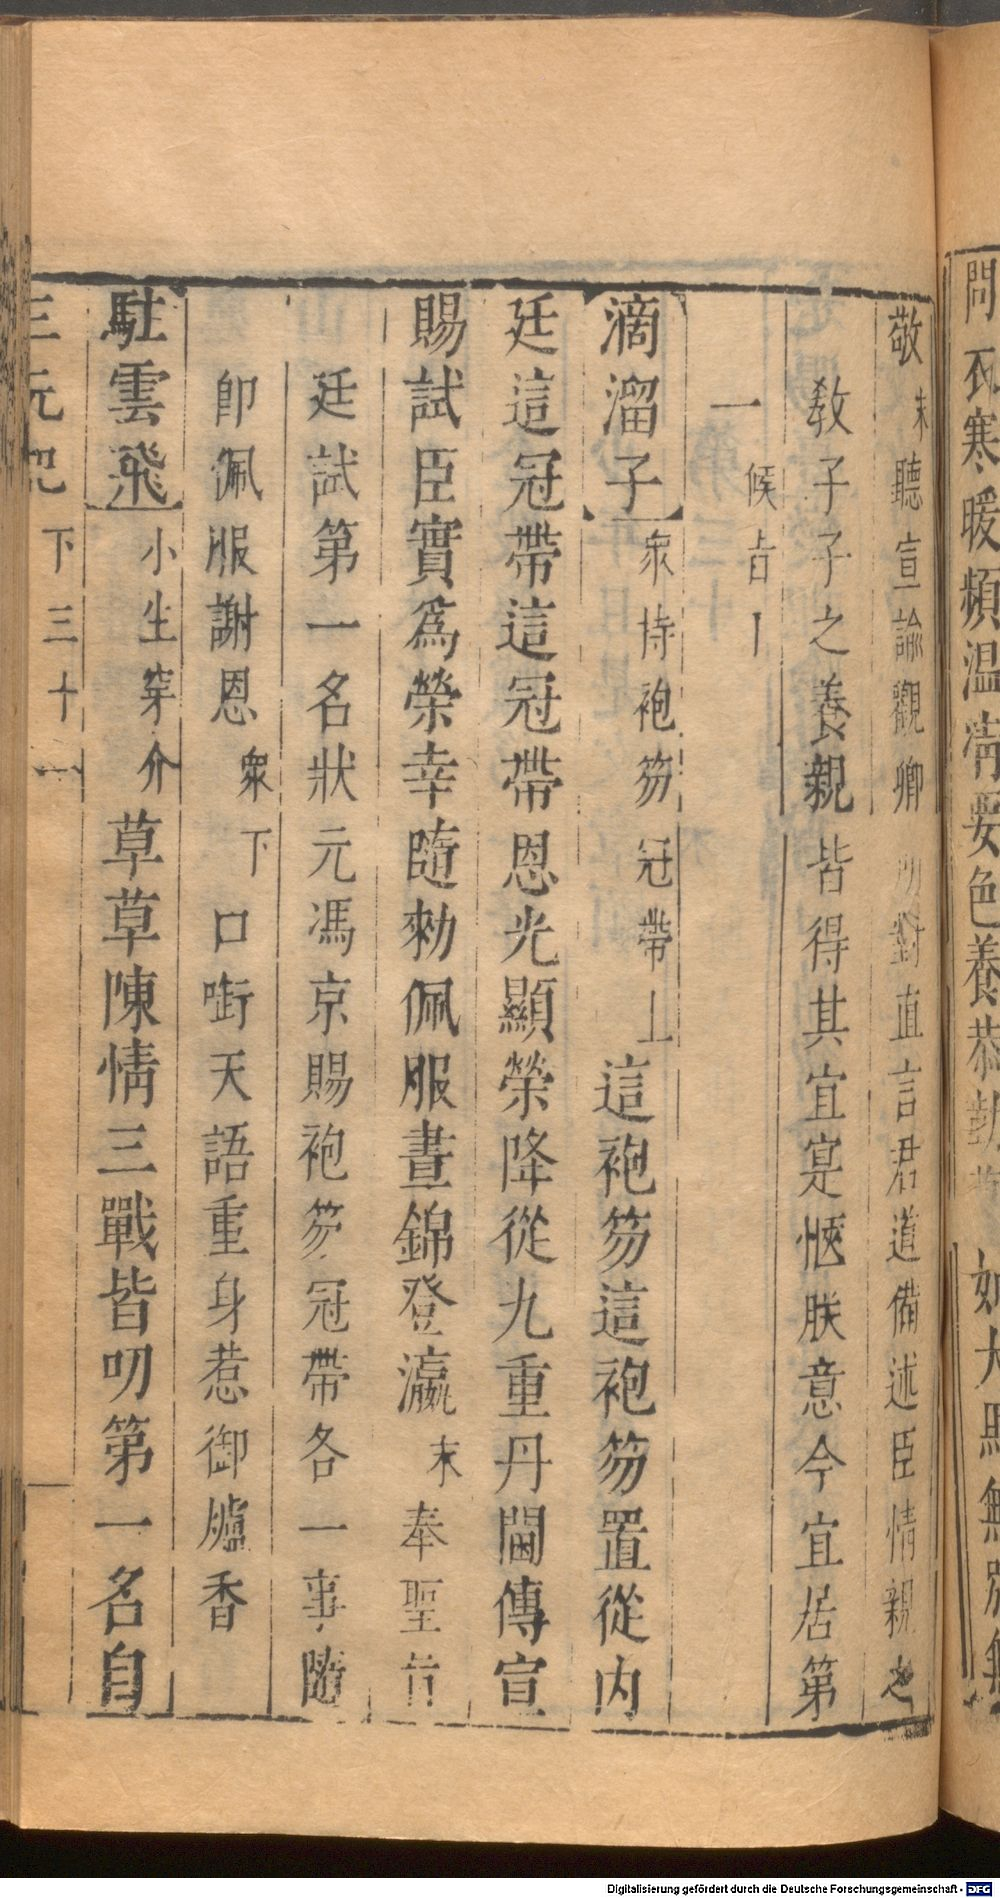 問衣寒暖頻温凊要色養恭
如大馬無别無
敬末聽宣諭觀卿所對直言君道備述臣情親之
敎子子之養親皆得其宜寔愜朕意今宜居第
一候占丨
滴溜子衆持袍笏冠帶上這袍笏這袍笏置從内
廷這冠帶這冠帶恩光顯榮降從九重丹閫傳宣
賜試臣實爲榮幸隨勑佩服晝錦登瀛末奉聖旨
廷試第一名狀元馮京賜袍笏冠帶各一事隨
卽佩服謝恩衆下口啣天語重身惹御爐香
駐雲飛小生穿介草草陳情三戰皆叨第一名自
三元記下三十一
Digitalisierung gefördert durch die Deutsche Forschungsgemeinschaft - DFG